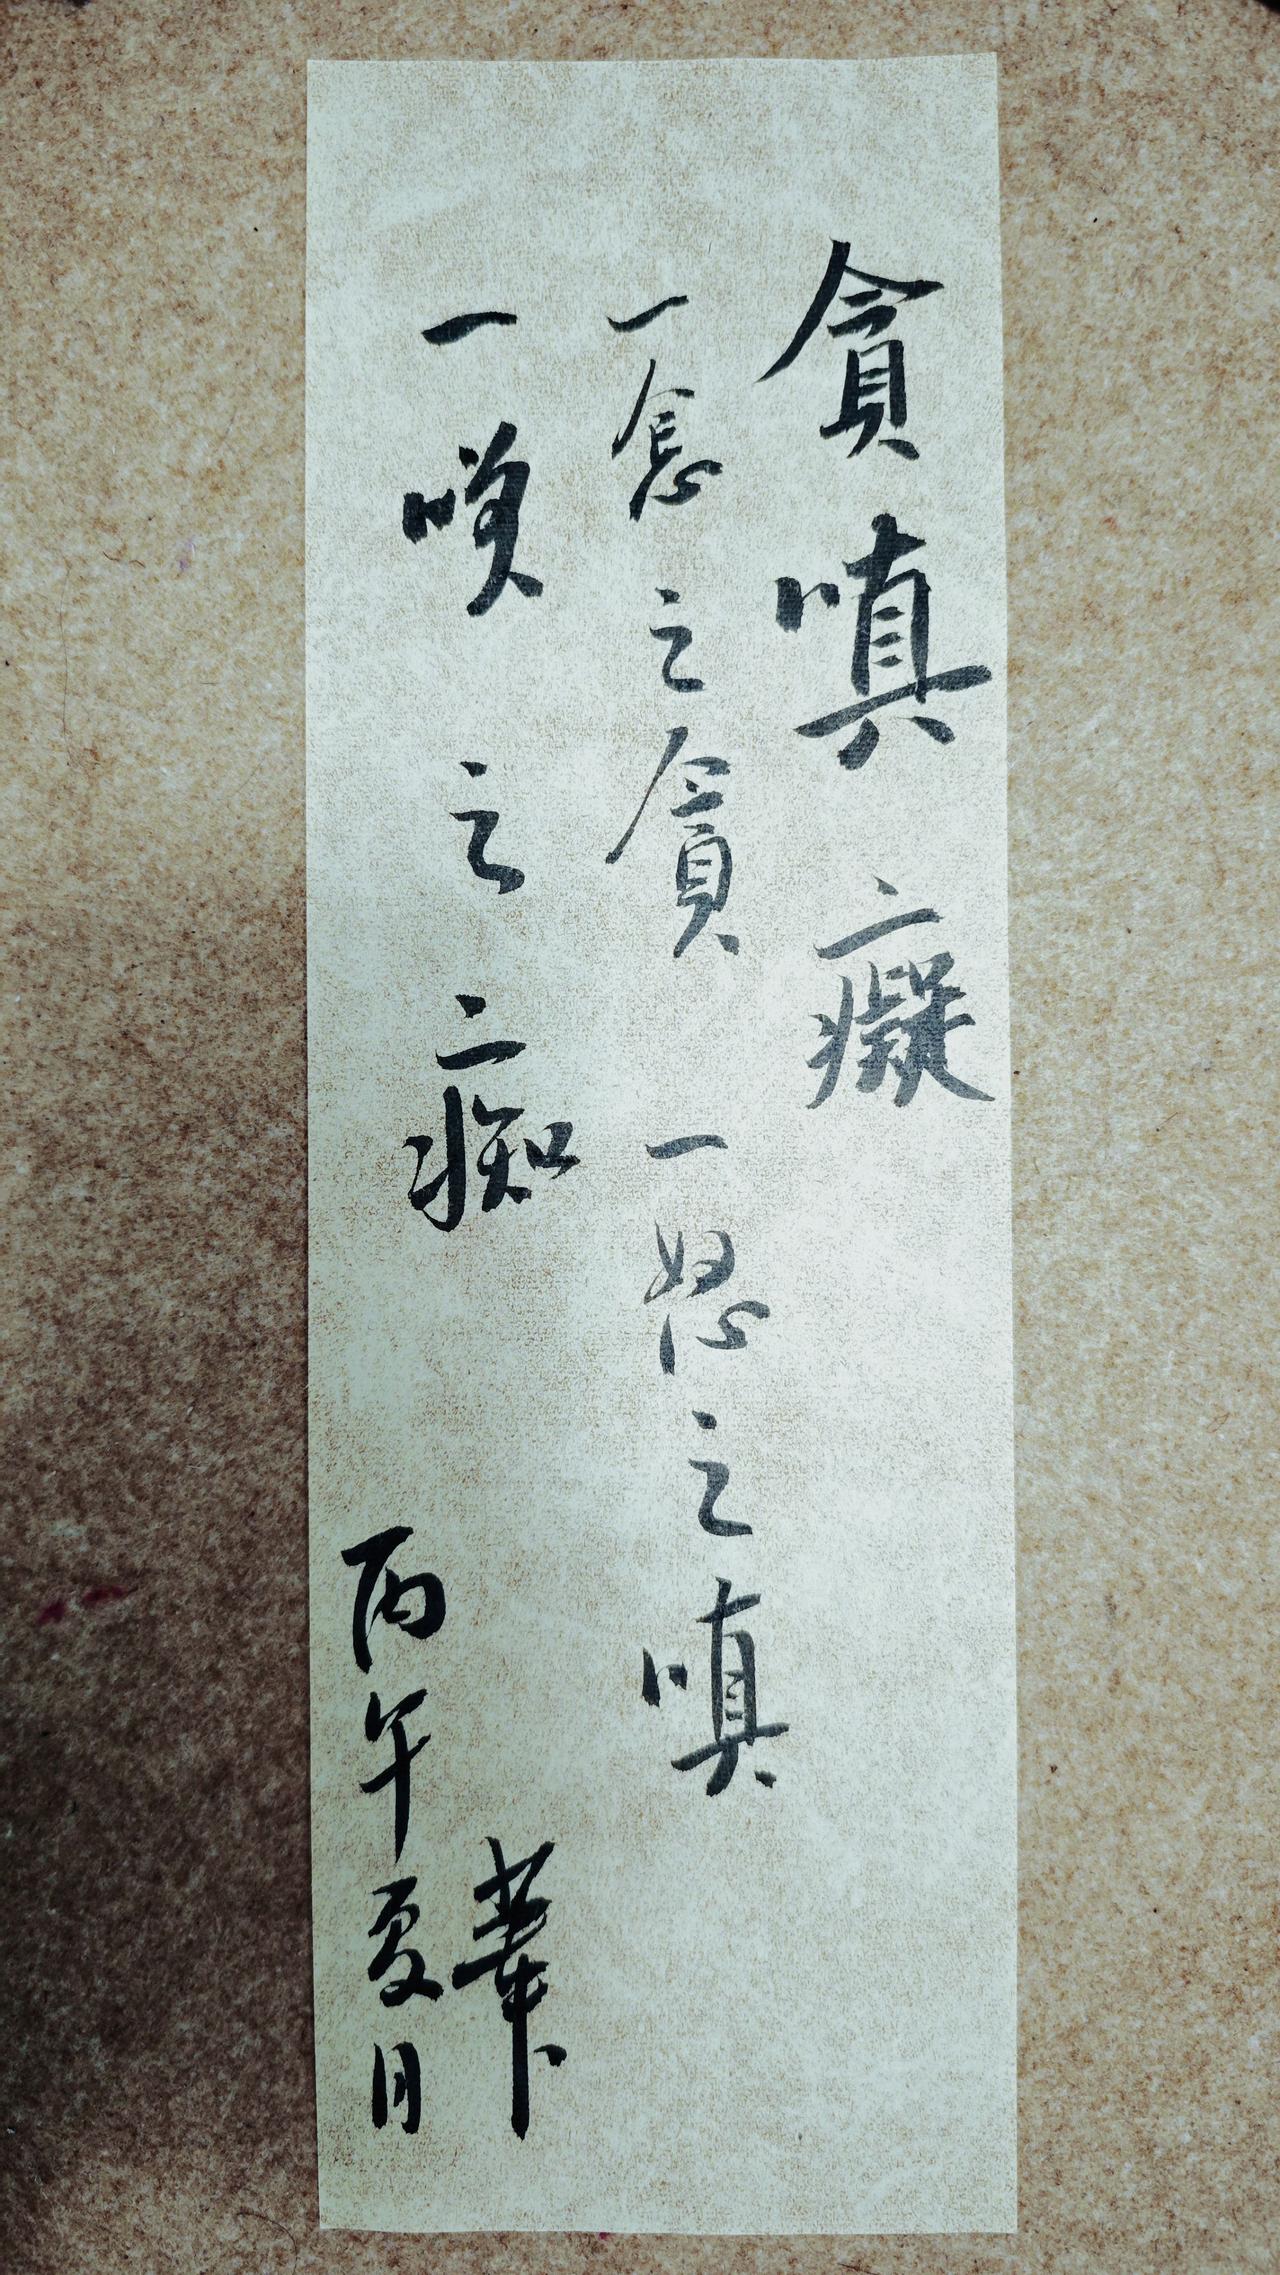 貪嗔癡
一念之貪一怒之嗔
一嘆之痴
丙午夏月
華